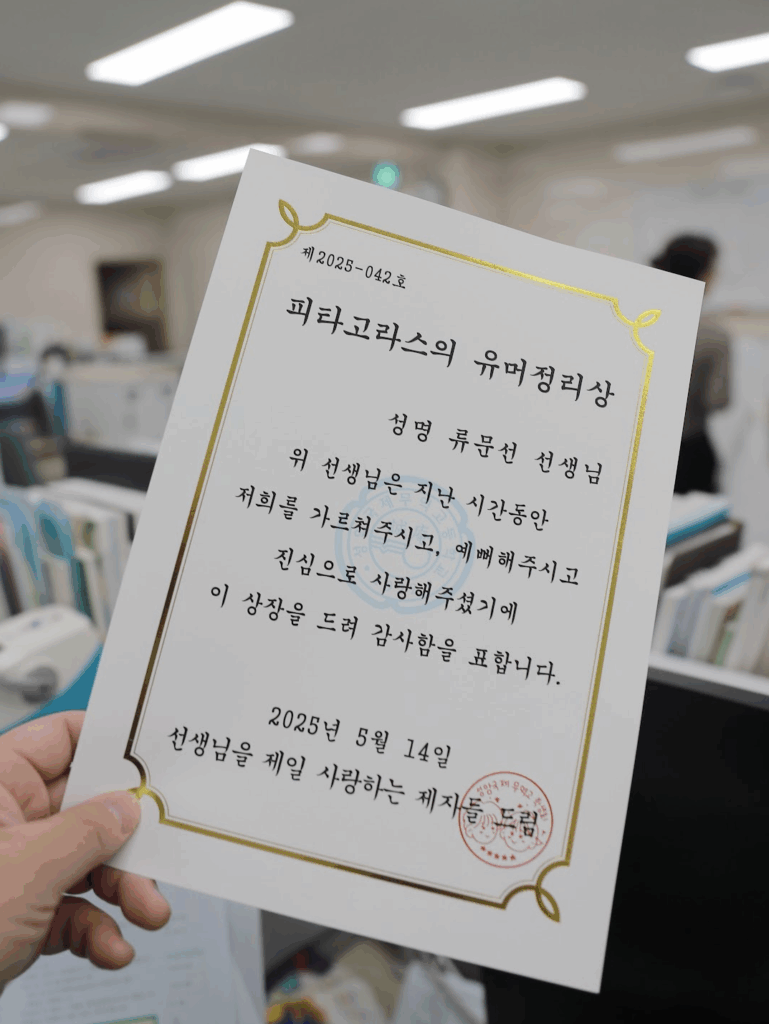 제2025-042호
피타고라스의 유머정리상
성명 류문선 선생님
위 선생님은 지난 시간동안
저희를 가르쳐주시고, 예뻐해주시고
진심으로 사랑해주셨기에
이 상장을 드려 감사함을 표합니다.
2025년 5월 14일
선생님을 제일 사랑하는 제자들 드림